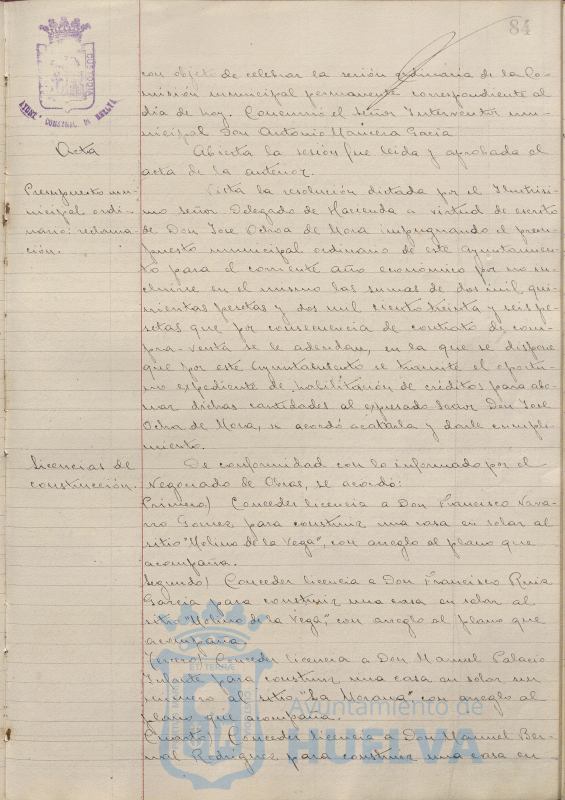 84
AYUNT. CONSTNAL. DE HUELVA
con objeto de celebrar la sesión ordinaria de la Co-
misión municipal permanente correspondiente al
día de hoy. Concurrió el Señor Interventor mu-
nicipal Don Antonio García
Acta
Abierta la sesión fue leída y aprobada el
acta de la anterior.
Presupuesto mu-
nicipal ordi-
nario: reclama-
ción.
Vista la resolución dictada por el Ilustrísi-
mo Señor Delegado de Hacienda a virtud de escrito
de Don José Ochoa de Mora impugnando el presu-
puesto municipal ordinario de este Ayuntamien-
to para el corriente año económico por no in-
cluirse en el mismo las sumas de dos mil qui-
nientas pesetas y dos mil ciento treinta y seis pe-
setas que por consecuencia de contrato de com-
pra-venta se le adeudan, en la que se dispone
que por este Ayuntamiento se tramite el oportu-
no expediente de habilitación de créditos para abo-
nar dichas cantidades al expresado Señor Don José
Ochoa de Mora, se acordó acatarla y darle cumpli-
miento.
Licencias de
construcción.
De conformidad con lo informado por el
Negociado de Obras, se acordó:
Primero) Conceder licencia a Don Francisco Nava-
rro Gomez para construir una casa en solar al
sitio "Molino de la Vega", con arreglo al plano que
acompaña.
Segundo) Conceder licencia a Don Francisco Ruiz
García para construir una casa en solar al
sitio "Molino de la Vega", con arreglo al plano que
acompaña.
Tercero) Conceder licencia a Don Manuel Palacio
Infante para construir una casa en solar sin
número al sitio "La Morana" con arreglo al
plano que acompaña.
Cuarto) Conceder licencia a Don Manuel Ber-
nal Rodríguez para construir una casa en
Ayuntamiento de
HUELVA